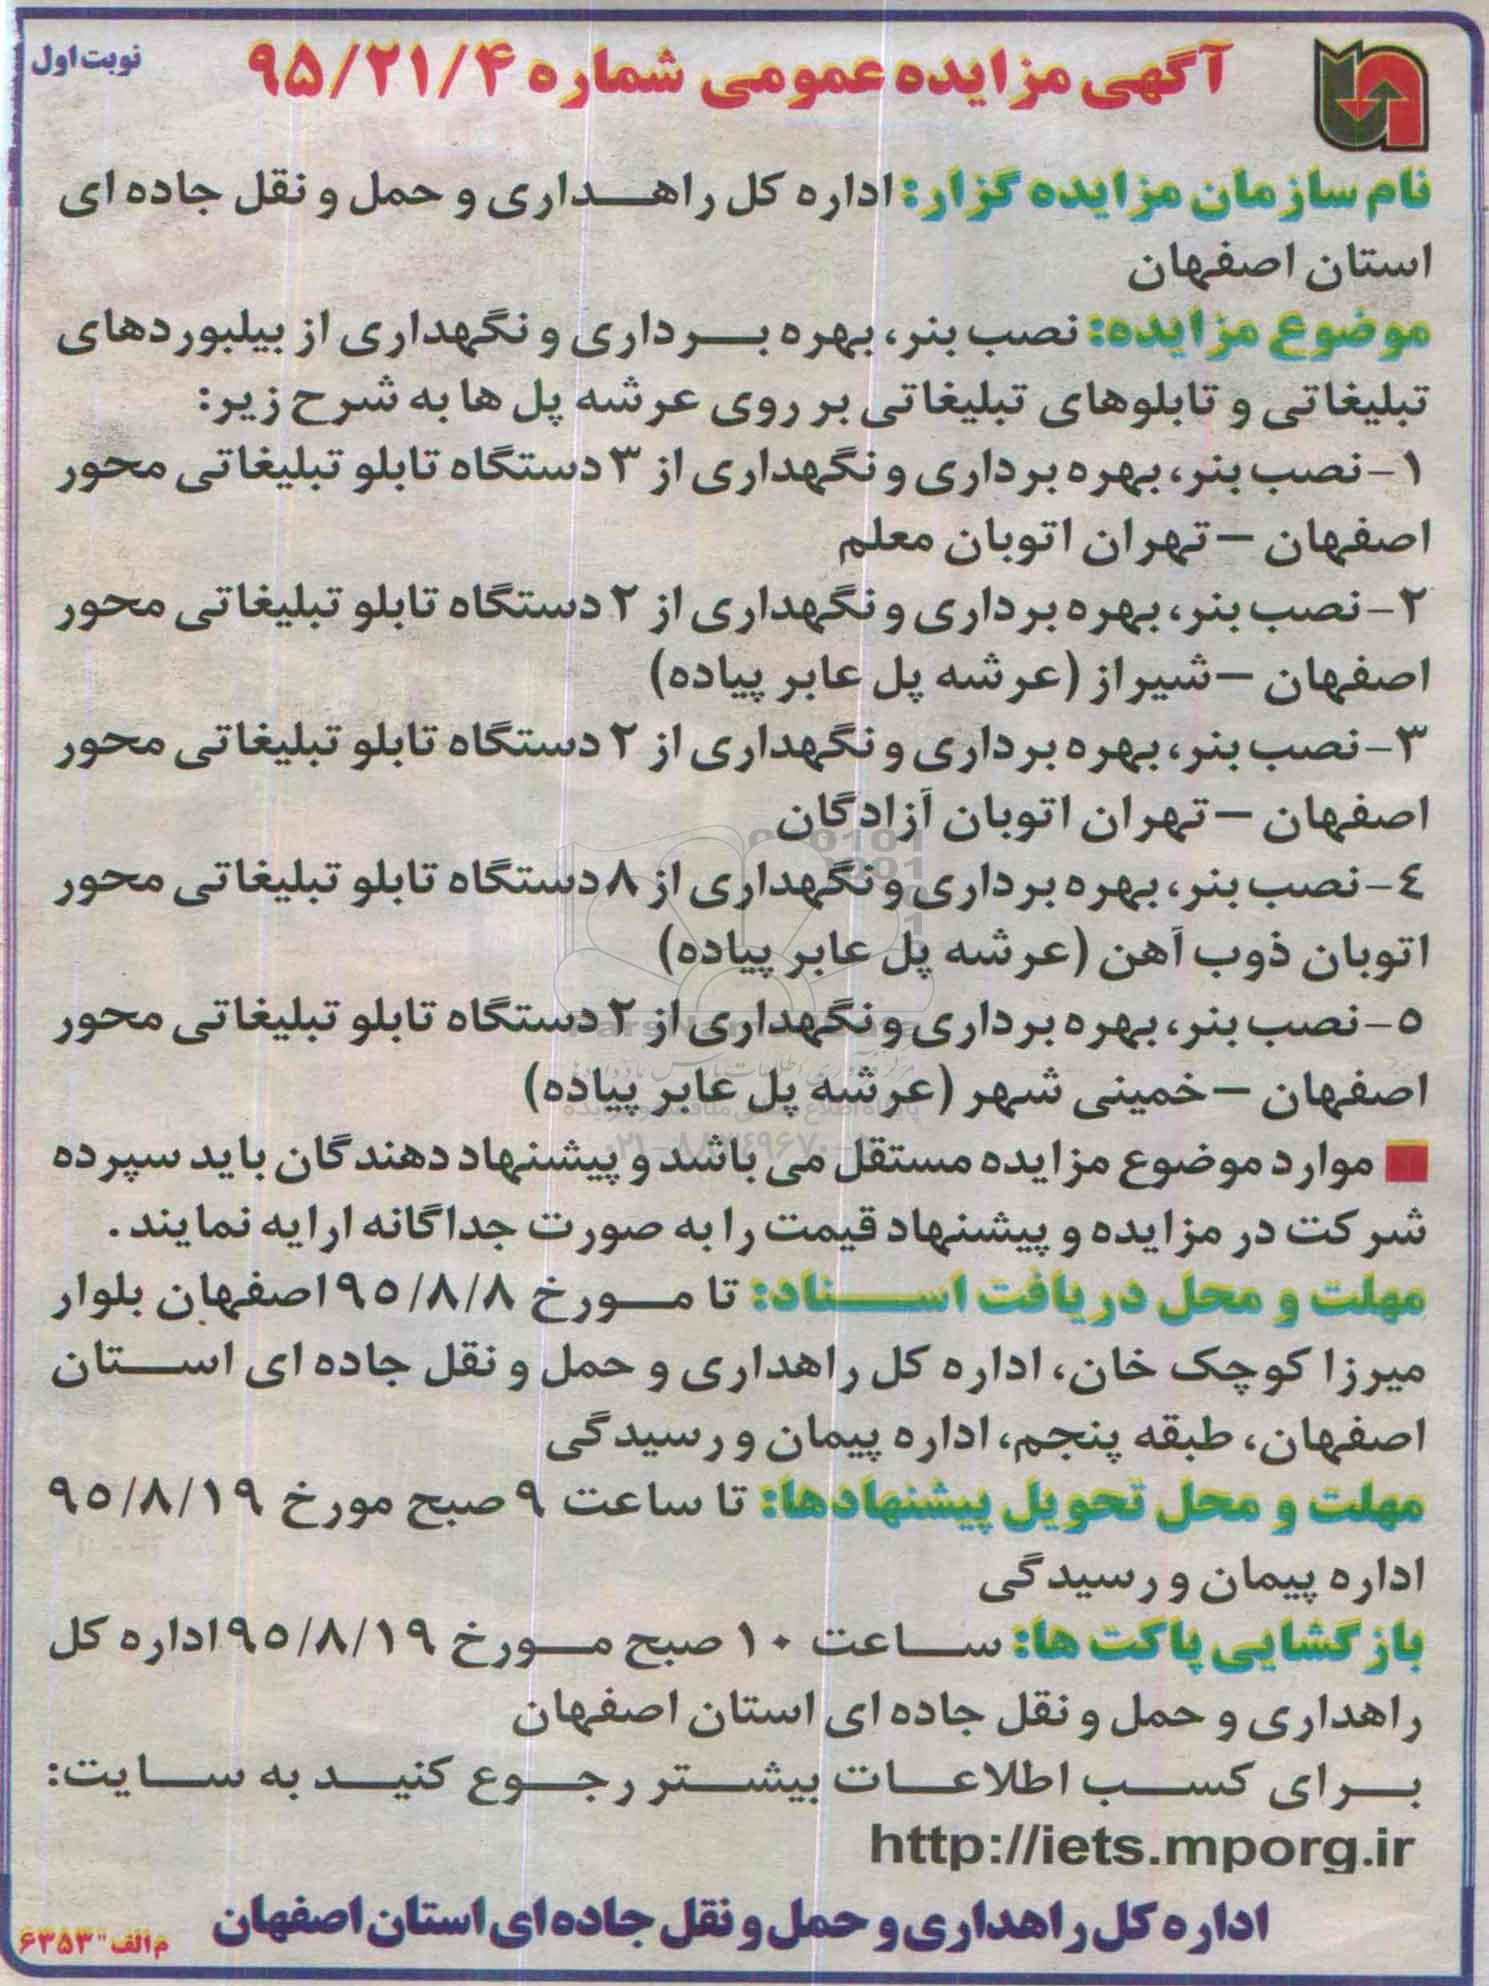 نوبت اول
آگهی مزایده عمومی شماره ۹۵/۲۱/۴
نام سازمان مزایده گزار: اداره کل راهداری و حمل و نقل جاده ای
استان اصفهان
موضوع مزایده: نصب بنر، بهره برداری و نگهداری از بیلبوردهای
تبلیغاتی و تابلوهای تبلیغاتی بر روی عرشه پل ها به شرح زیر:
۱- نصب بنر، بهره برداری و نگهداری از ۳ دستگاه تابلو تبلیغاتی محور
اصفهان – تهران اتوبان معلم
۲- نصب بنر، بهره برداری و نگهداری از ۲ دستگاه تابلو تبلیغاتی محور
اصفهان – شیراز (عرشه پل عابر پیاده)
۳- نصب بنر، بهره برداری و نگهداری از ۲ دستگاه تابلو تبلیغاتی محور
اصفهان – تهران اتوبان آزادگان
٤- نصب بنر، بهره برداری و نگهداری از ۸ دستگاه تابلو تبلیغاتی محور
اتوبان ذوب آهن (عرشه پل عابر پیاده)
۵- نصب بنر، بهره برداری و نگهداری از ۲ دستگاه تابلو تبلیغاتی محور
اصفهان – خمینی شهر (عرشه پل عابر پیاده)
■ موارد موضوع مزایده مستقل می باشد و پیشنهاد دهندگان باید سپرده
شرکت در مزایده و پیشنهاد قیمت را به صورت جداگانه ارایه نمایند.
مهلت و محل دریافت اسناد: تا مورخ ۹۵/۸/۸ اصفهان بلوار
میرزا کوچک خان، اداره کل راهداری و حمل و نقل جاده ای استان
اصفهان، طبقه پنجم، اداره پیمان و رسیدگی
مهلت و محل تحویل پیشنهادها: تا ساعت ۹ صبح مورخ ۹۵/۸/۱۹
اداره پیمان و رسیدگی
بازگشایی پاکت ها: ساعت ۱۰ صبح مورخ ۹۵/۸/۱۹ اداره کل
راهداری و حمل و نقل جاده ای استان اصفهان
برای کسب اطلاعات بیشتر رجوع کنید به سایت:
http://iets.mporg.ir
اداره کل راهداری و حمل و نقل جاده ای استان اصفهان
م الف" ۶۳۵۳